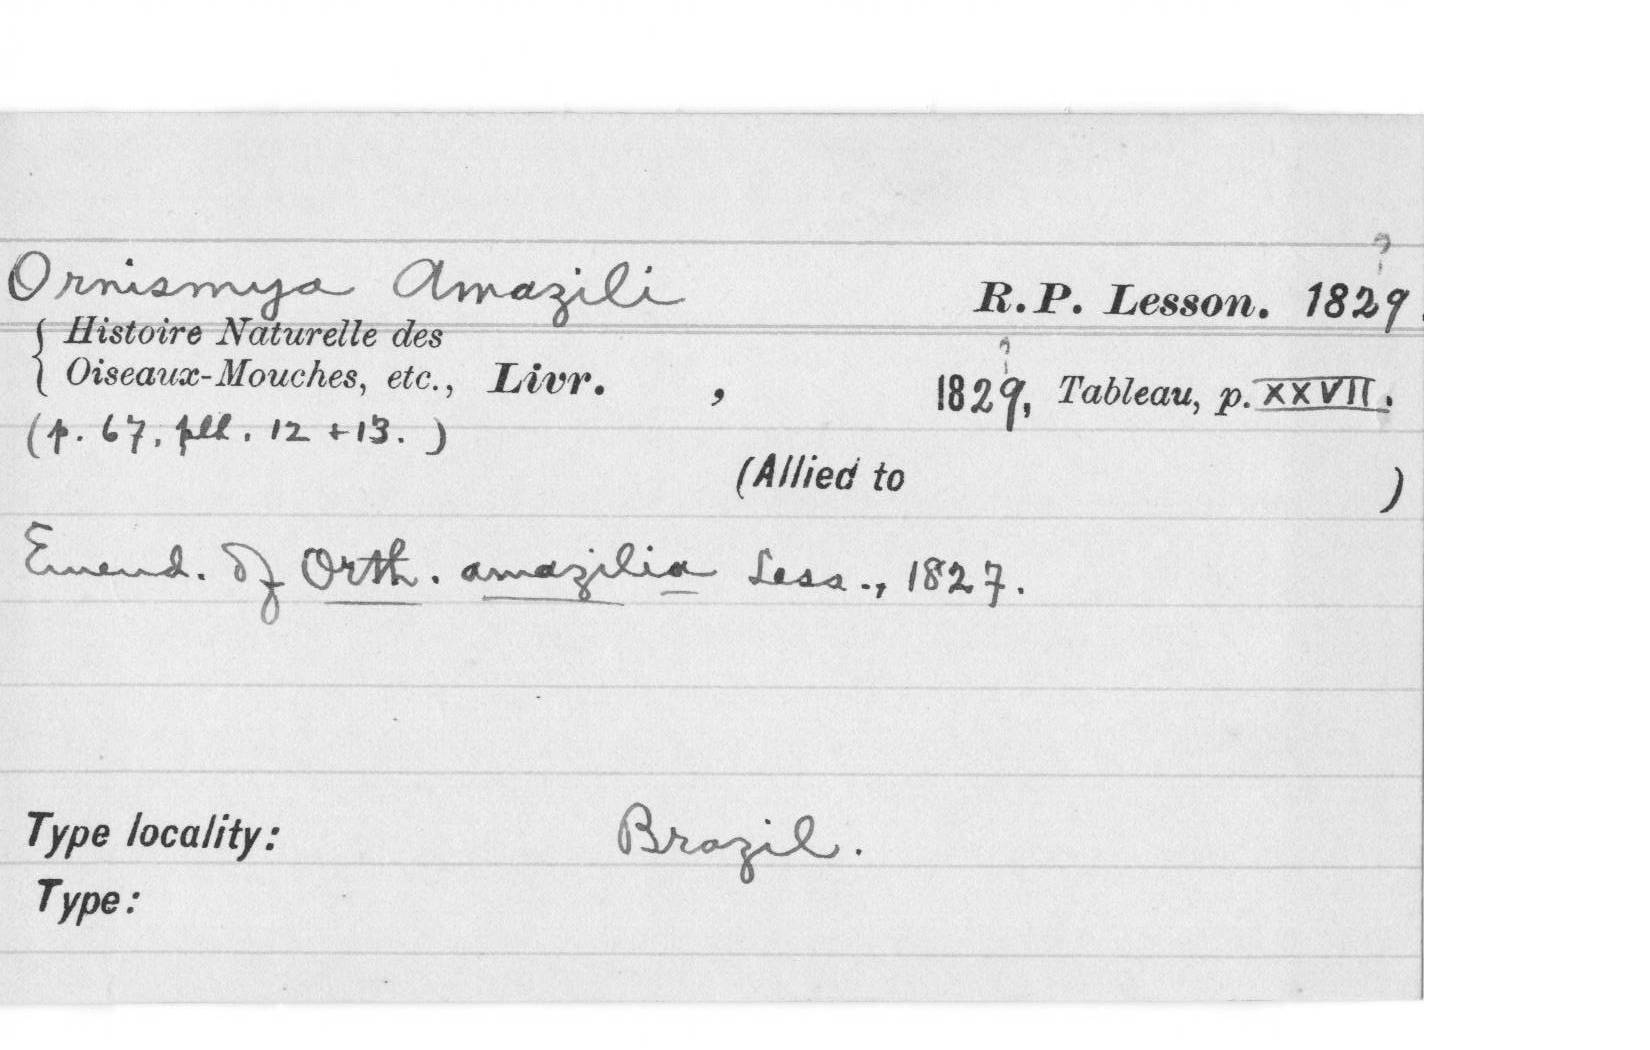 ?
Ornismya Amazili R.P. Lesson. 1829.
{ Histoire Naturelle des
Oiseaux-Mouches, etc., Livr. , 1829, Tableau, p. XXVII.
?
(p. 67, pll. 12 + 13.)
(Allied to )
Emend. of Orth. amazilia Less., 1827.
Type locality: Brazil.
Type: